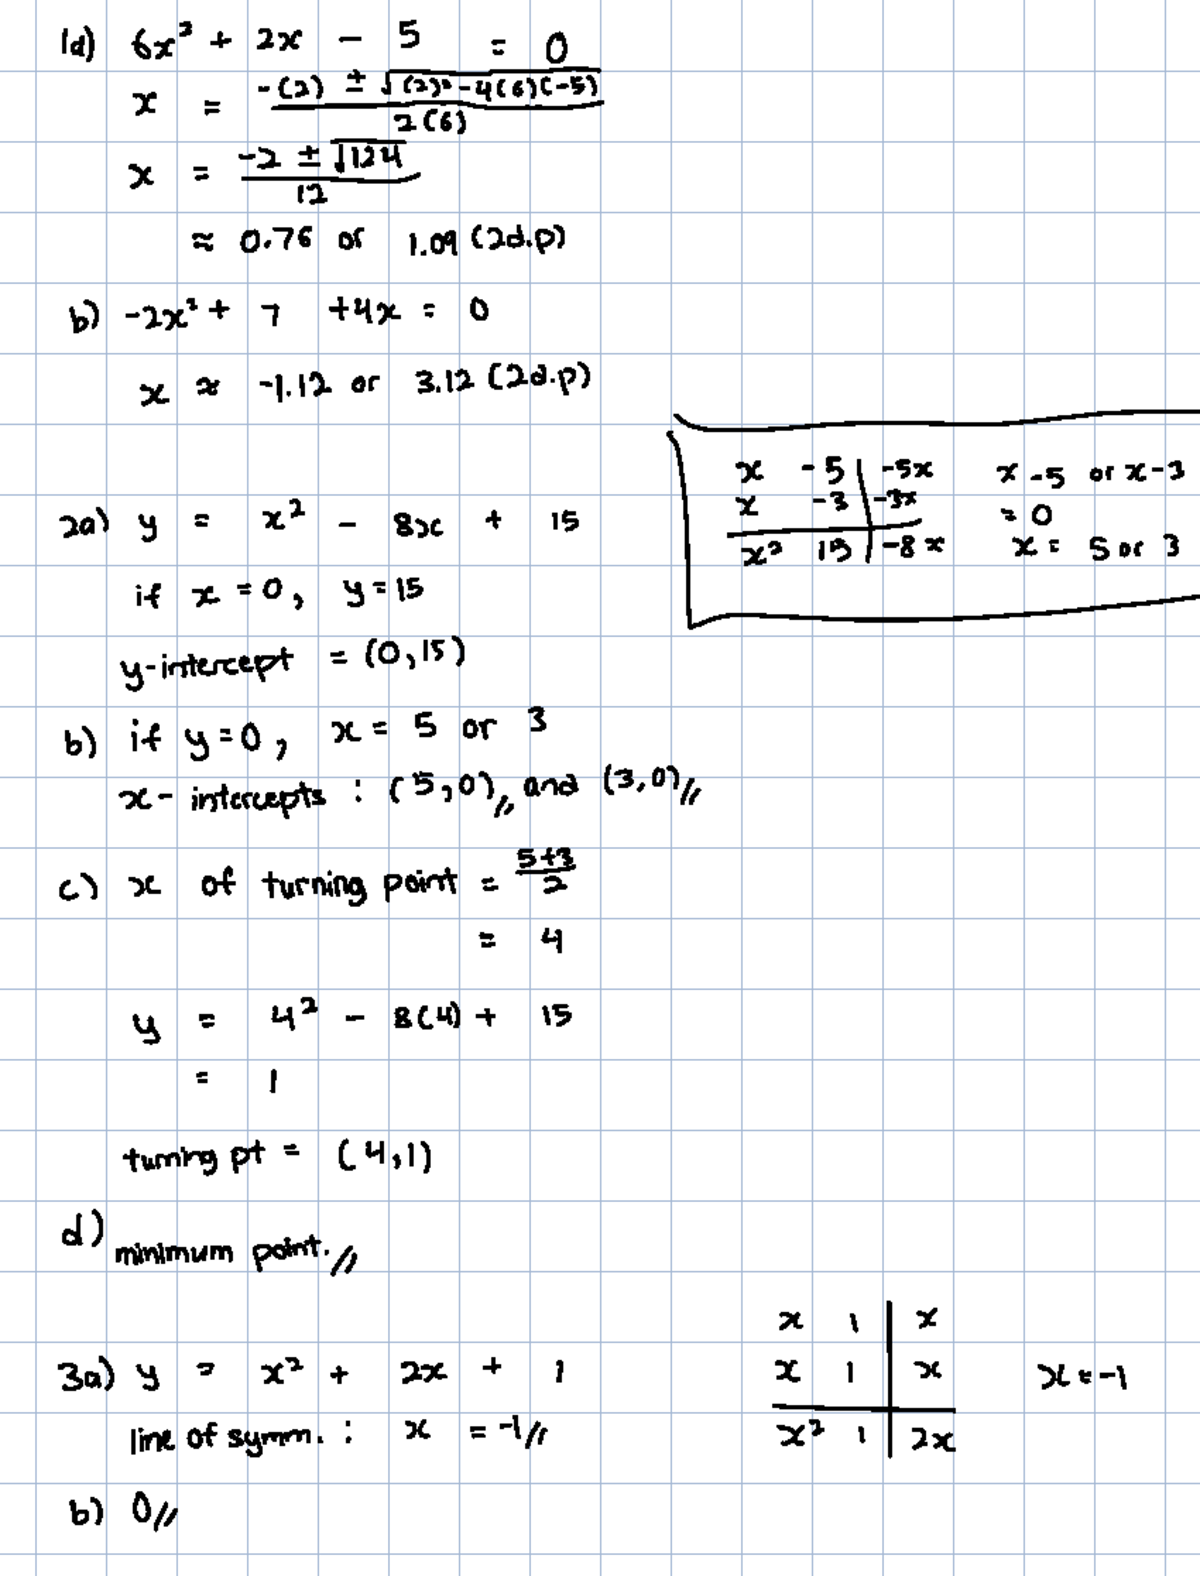 1a) 6x² + 2x - 5 = 0
x = -(2) ± √(2)²-4(6)(-5) / 2(6)
x = -2 ± √124 / 12
≈ 0.76 or 1.09 (2d.p)
b) -2x² + 7 +4x = 0
x ≈ -1.12 or 3.12 (2d.p)
x -5 | -5x x -5 or x-3
x -3 | -3x = 0
x² 15 | -8x x = 5 or 3
2a) y = x² - 8x + 15
if x = 0, y = 15
y-intercept = (0,15)
b) if y = 0, x = 5 or 3
x- intercepts : (5,0)// and (3,0)//
c) x of turning point = 5+3 / 2
= 4
y = 4² - 8(4) + 15
= 1
turning pt = (4,1)
d) minimum point.//
x 1 | x
x 1 | x x = -1
x² 1 | 2x
3a) y = x² + 2x + 1
line of symm. : x = -1//
b) 0//